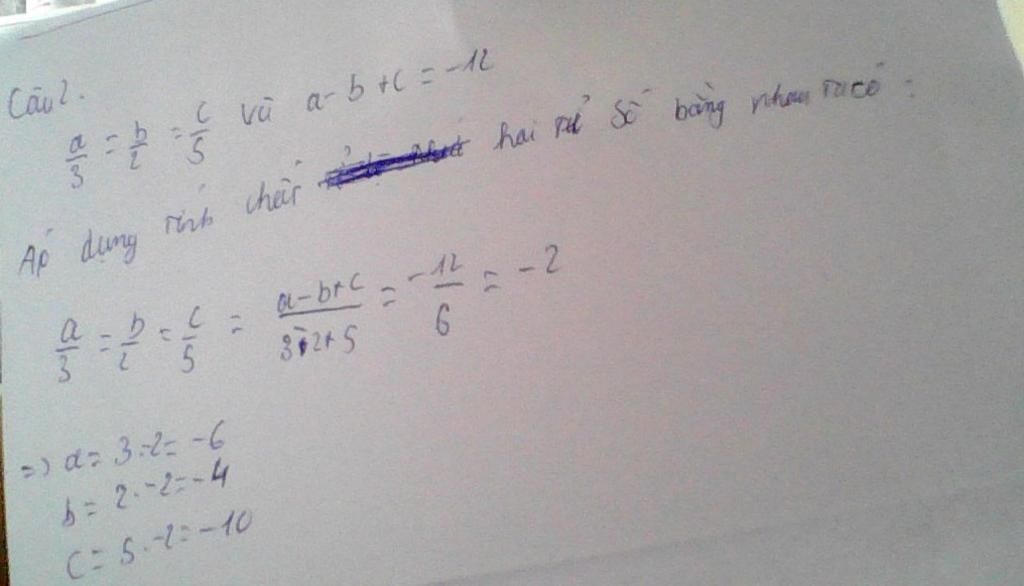 Câu 2.
a/3 = b/2 = c/5 và a - b + c = -12
Áp dụng tính chất hai tỉ số bằng nhau ta có :
a/3 = b/2 = c/5 = a-b+c/3-2+5 = -12/6 = -2
=> a = 3.-2 = -6
b = 2.-2 = -4
c = 5.-2 = -10